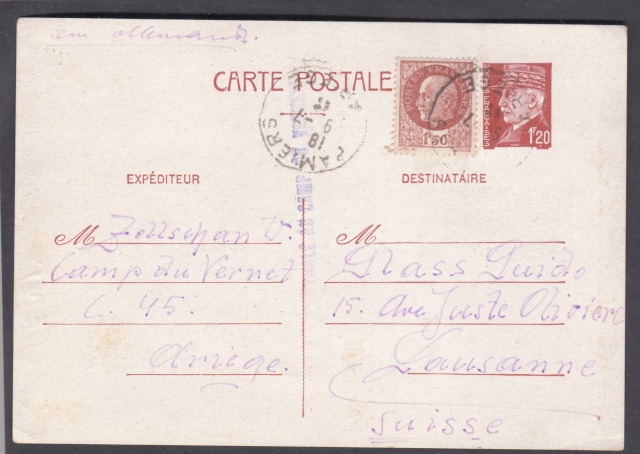 en allemand.
CARTE POSTALE
PAMIERS
18
9 -7
1F50
1F20
EXPÉDITEUR
DESTINATAIRE
M Zollschan V.
Camp du Vernet
C. 45.
Ariège.
M
Glass Guido
15. Ave Juste Olivier
Lausanne
Suisse